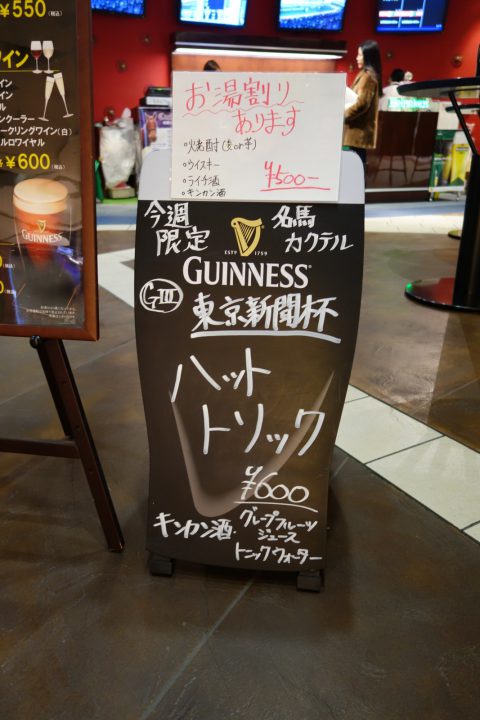 ¥550(税込)
ワイン
¥600(税込)
GUINNESS
お湯割り
あります
◦焼酎(麦or芋)
◦ウイスキー
◦ライチ酒
◦キンカン酒
¥500-
今週
限定
名馬
カクテル
ESTD 1759
GUINNESS
GⅢ
東京新聞杯
ハット
トリック
¥600
キンカン酒
グレープフルーツ
ジュース
トニックウォーター